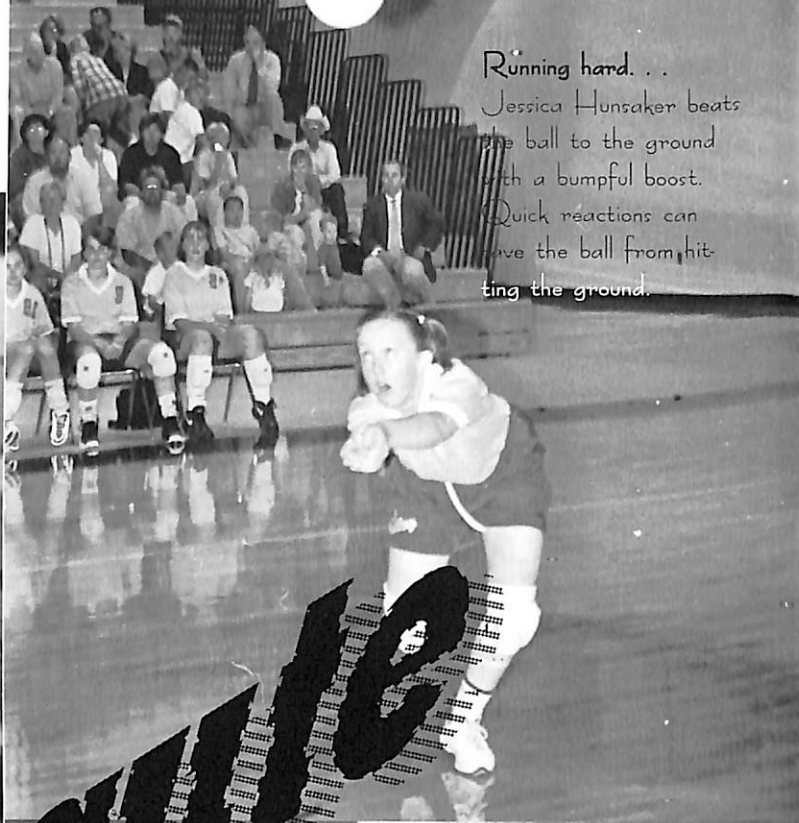 Running hard. . .
Jessica Hunsaker beats
the ball to the ground
with a bumpful boost.
Quick reactions can
save the ball from hit-
ting the ground.